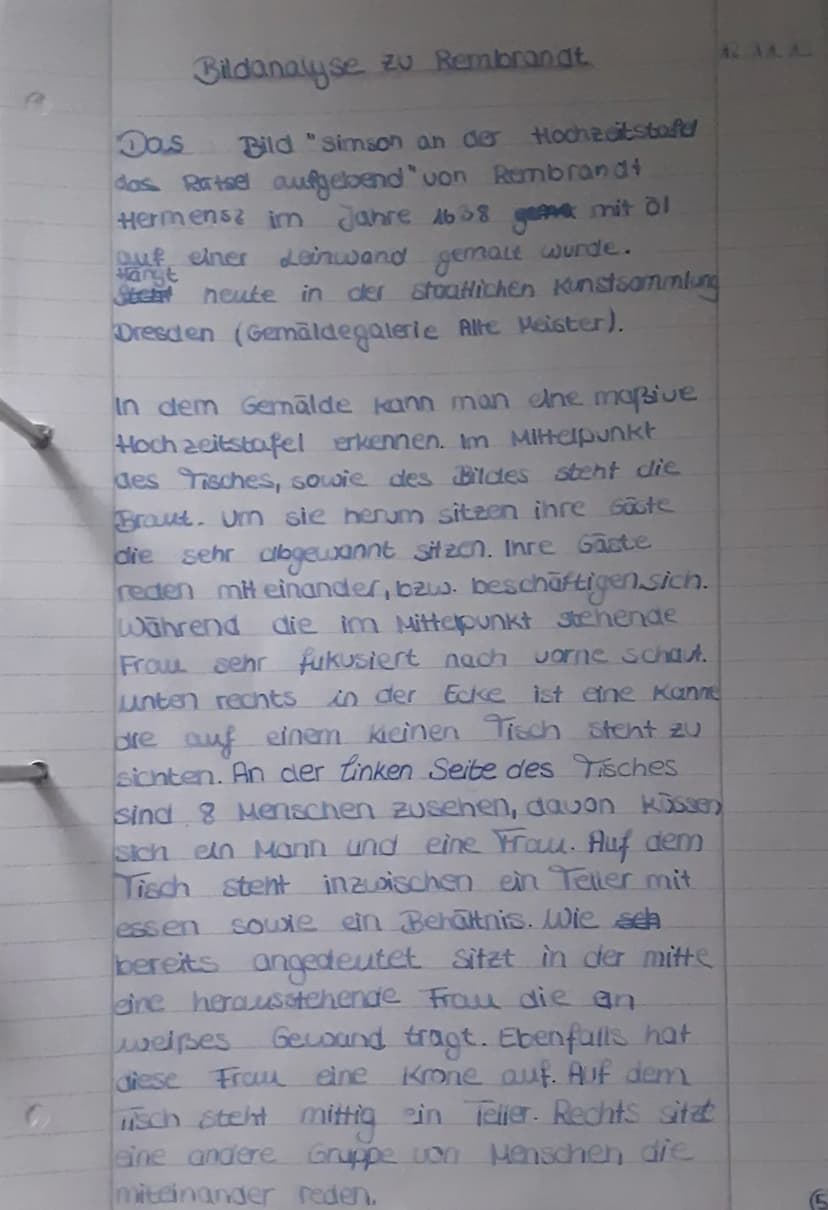 Bildanalyse zu Rembrandt
Das Bild "Simson an der Hochzeitstafel
das Rätsel aufgebend" von Rembrandt
Hermensz im Jahre 1638 mit Öl
auf einer Leinwand gemalt wurde.
Hängt
heute in der staatlichen Kunstsammlung
Dresden (Gemäldegalerie Alte Meister).
In dem Gemälde kann man eine maßive
Hochzeitstafel erkennen. Im Mittelpunkt
des Tisches, sowie des Bildes steht die
Braut. Um sie herum sitzen ihre Gäste
die sehr abgewannt sitzen. Ihre Gäste
reden miteinander, bzw. beschäftigen sich.
Während die im Mittelpunkt stehende
Frau sehr fukusiert nach vorne schaut.
unten rechts in der Ecke ist eine Kanne
die auf einem kleinen Tisch steht zu
sichten. An der linken Seite des Tisches
sind 8 Menschen zusehen, davon küssen
sich ein Mann und eine Frau. Auf dem
Tisch steht inzwischen ein Teller mit
essen sowie ein Behältnis. Wie sch
bereits angedeutet sitzt in der mitte
eine herausstehende Frau die an
weißes Gewand tragt. Ebenfalls hat
diese Frau eine Krone auf. Auf dem
Tisch steht mittig ein Teller. Rechts sitzt
eine andere Gruppe von Menschen die
miteinander reden.
5